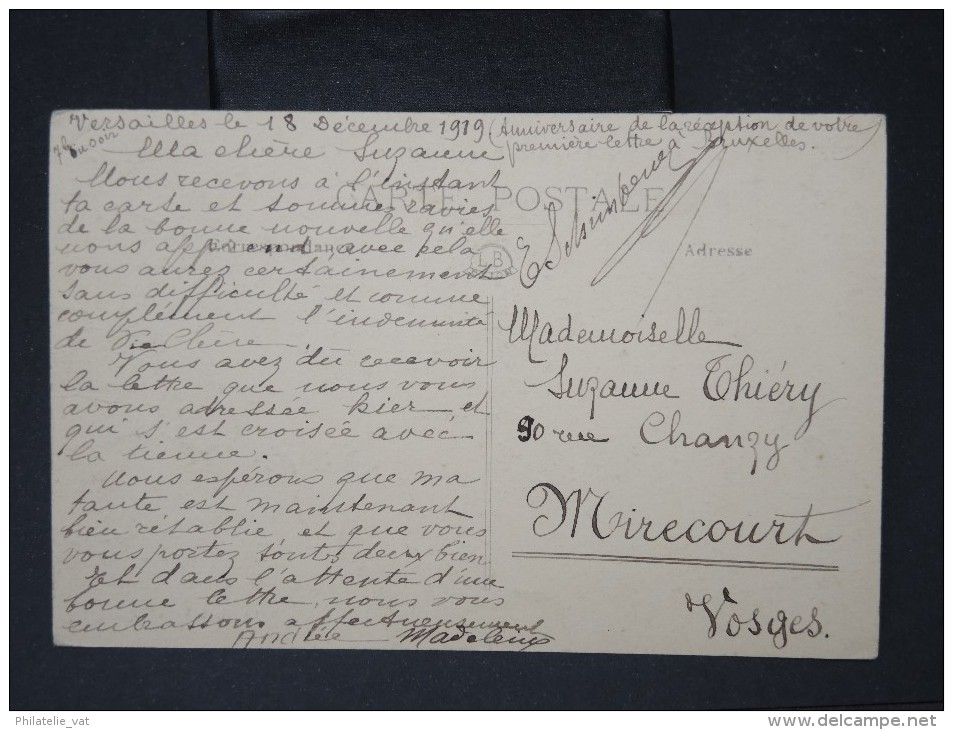 Versailles le 18 Décembre 1919 (Anniversaire de la réception de votre
première lettre à Bruxelles.
7h du soir
Ma chère Suzanne
CARTE POSTALE
Nous recevons à l'instant
ta carte et sommes ravies
de la bonne nouvelle qu'elle
nous apprend, avec cela
Correspondance
Adresse
LB
vous aurez certainement
sans difficulté et comme
complément l'indemnité
de Vie Chère.
Vous avez dû recevoir
la lettre que nous vous
avons adressée hier et
qui s'est croisée avec
la tienne.
Nous espérons que ma
tante est maintenant
bien rétablie et que vous
vous portez toutes deux bien
Et dans l'attente d'une
bonne lettre, nous vous
embrassons affectueusement
Andrée Madeleine
Mademoiselle
Suzanne Thiéry
90 rue Chanzy
Mirecourt
Vosges.
Philatelie_vat
http://www.delcampe.net